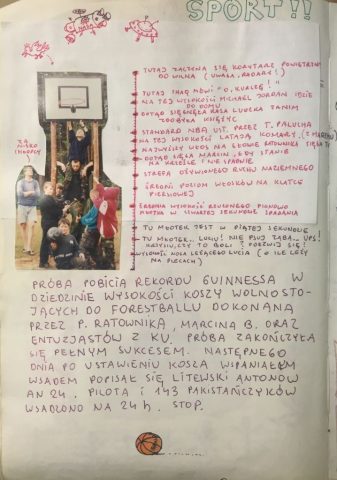 SPORT!!
TUTAJ ZACZYNA SIĘ KORYTARZ POWIETRZNY
DO WILNA (UWAGA, RADARY!)
TUTAJ SHAQ MÓWI "O, KURCZĘ!"
NA TEJ WYSOKOŚCI MICHAEL JORDAN IDZIE
DO DOMU
DOTĄD SIĘGNĘŁA RASA LUDZKA ZANIM
ZDOBYŁA KSIĘŻYC
STANDARD NBA UST. PRZEZ T. PALUCHA
NA TEJ WYSOKOŚCI LATAJĄ KOMARY
NAJWYŻSZY WŁOS NA GŁOWIE RATOWNIKA SIĘGA TU
DOTĄD SIĘGA MARCIN, GDY STANIE
NA KRZEŚLE I NIE SPADNIE
STREFA OŻYWIONEGO RUCHU NAZIEMNEGO
ŚREDNI POZIOM WŁOSKÓW NA KLATCE
PIERSIOWEJ
ŚREDNIA WYSOKOŚĆ RZUCONEGO PIONOWO
MŁOTKA W CZWARTEJ SEKUNDZIE SPADANIA
TU MŁOTEK JEST W PIĄTEJ SEKUNDZIE
TU MŁOTEK.. LUCU! NIE PLUJ ŻABĄ.. UPS!
KRZYSIU, CZY TO BOLI? PODZWIĘJ SIĘ!
WYSOKOŚĆ NOSA LEŻĄCEGO LUCIA (O ILE LEŻY
NA PLECACH)
ZA
NISKO
CHŁOPCY
PRÓBA POBICIA REKORDU GUINNESSA W
DZIEDZINIE WYSOKOŚCI KOSZY WOLNOSTO-
JĄCYCH DO FORESTBALLU DOKONANA
PRZEZ P. RATOWNIKA, MARCINA B. ORAZ
ENTUZJASTÓW Z KU. PRÓBA ZAKOŃCZYŁA
SIĘ PEŁNYM SUKCESEM. NASTĘPNEGO
DNIA PO USTAWIENIU KOSZA WSPANIAŁYM
WSADEM POPISAŁ SIĘ LITEWSKI ANTONOW
AN 24. PILOTA I 143 PAKISTAŃCZYKÓW
WSADZONO NA 24 h. STOP.